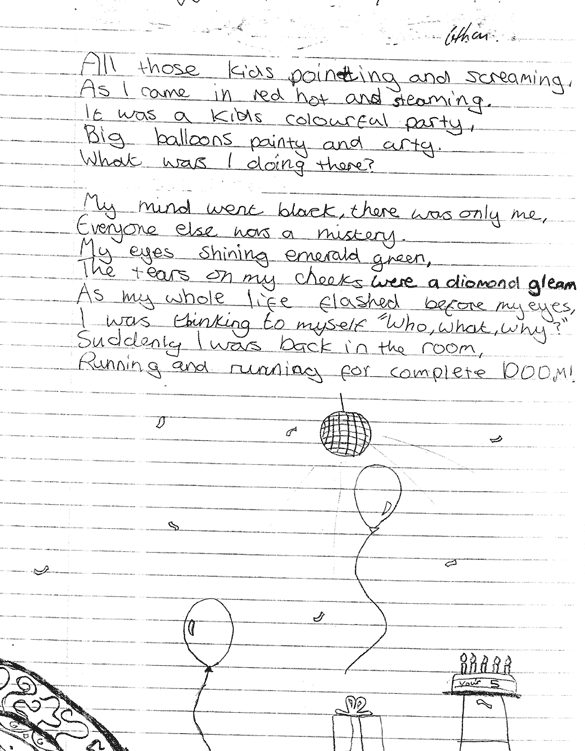 Ethan.
All those kids pointting and screaming,
As I came in red hot and steaming.
It was a kids colourful party,
Big balloons painty and arty.
What was I doing there?
My mind went black, there was only me,
Everyone else was a mistery.
My eyes shining emerald green,
The tears on my cheeks were a diomond gleam
As my whole life flashed before my eyes,
I was thinking to myself "who, what, why?"
Suddenly I was back in the room,
Running and running for complete DOOM!
your 5